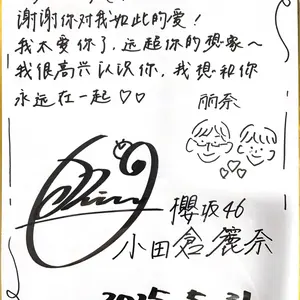 谢谢你对我如此的爱！
我太爱你了，远超你的想象～
我很高兴认识你，我想和你
永远在一起♡♡
丽奈
櫻坂46
小田倉麗奈
2025.5.31